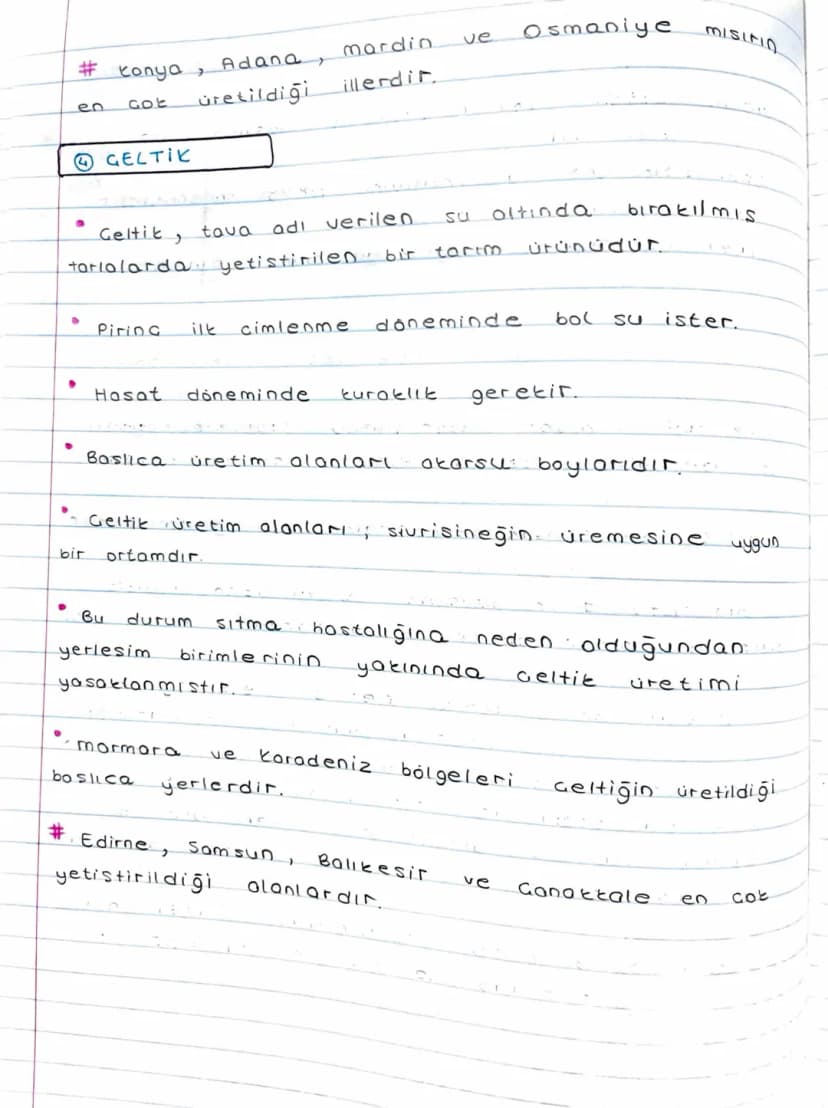 # Konya, Adana, mardin ve Osmaniye mısırın
en cok üretildiği illerdir.
④ CELTİK
• Celtik, tava adı verilen su altında bırakılmıs
tarlalarda yetistirilen bir tarım ürünüdür.
• Pirinc ilk cimlenme döneminde bol su ister.
• Hasat döneminde kuraklık gerekir.
• Baslıca üretim alanları akarsu boylarıdır.
• Celtik üretim alanları; sivrisineğin üremesine uygun
bir ortamdır.
• Bu durum sıtma hastalığına neden olduğundan
yerlesim birimlerinin yakınında celtik üretimi
yasaklanmıstır.
• marmara ve Karadeniz bölgeleri celtiğin üretildiği
baslıca yerlerdir.
# Edirne, Samsun, Balıkesir ve Canakkale en cok
yetistirildiği alanlardır.